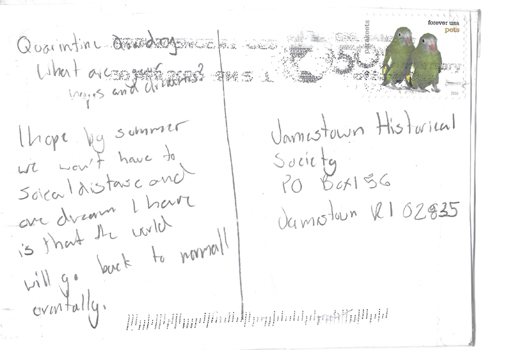 Quarintine
What are your
hopes and dreams?
I hope by summer
we won't have to
Soical distance and
one dream I have
is that the world
will go back to normall
eventally.
forever USA
pets
parakeets
Jamestown Historical
Society
PO Box 156
Jamestown RI 02835